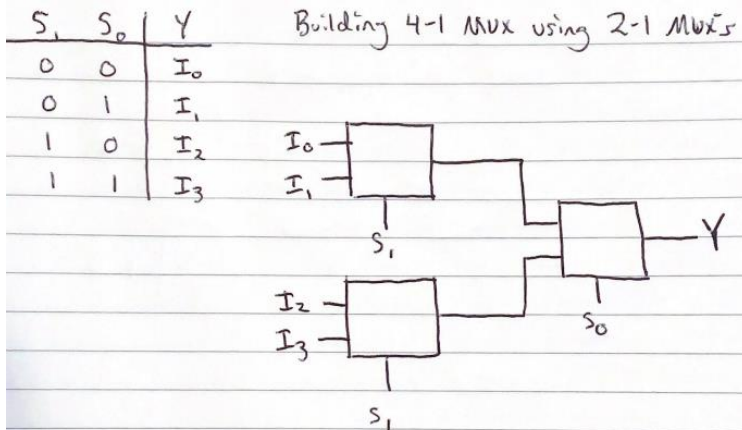 S₁ S₀ Y
0 0 I₀
0 1 I₁
1 0 I₂
1 1 I₃
Building 4-1 Mux using 2-1 Mux's
I₀
I₁
S₁
I₂
I₃
S₁
Y
S₀